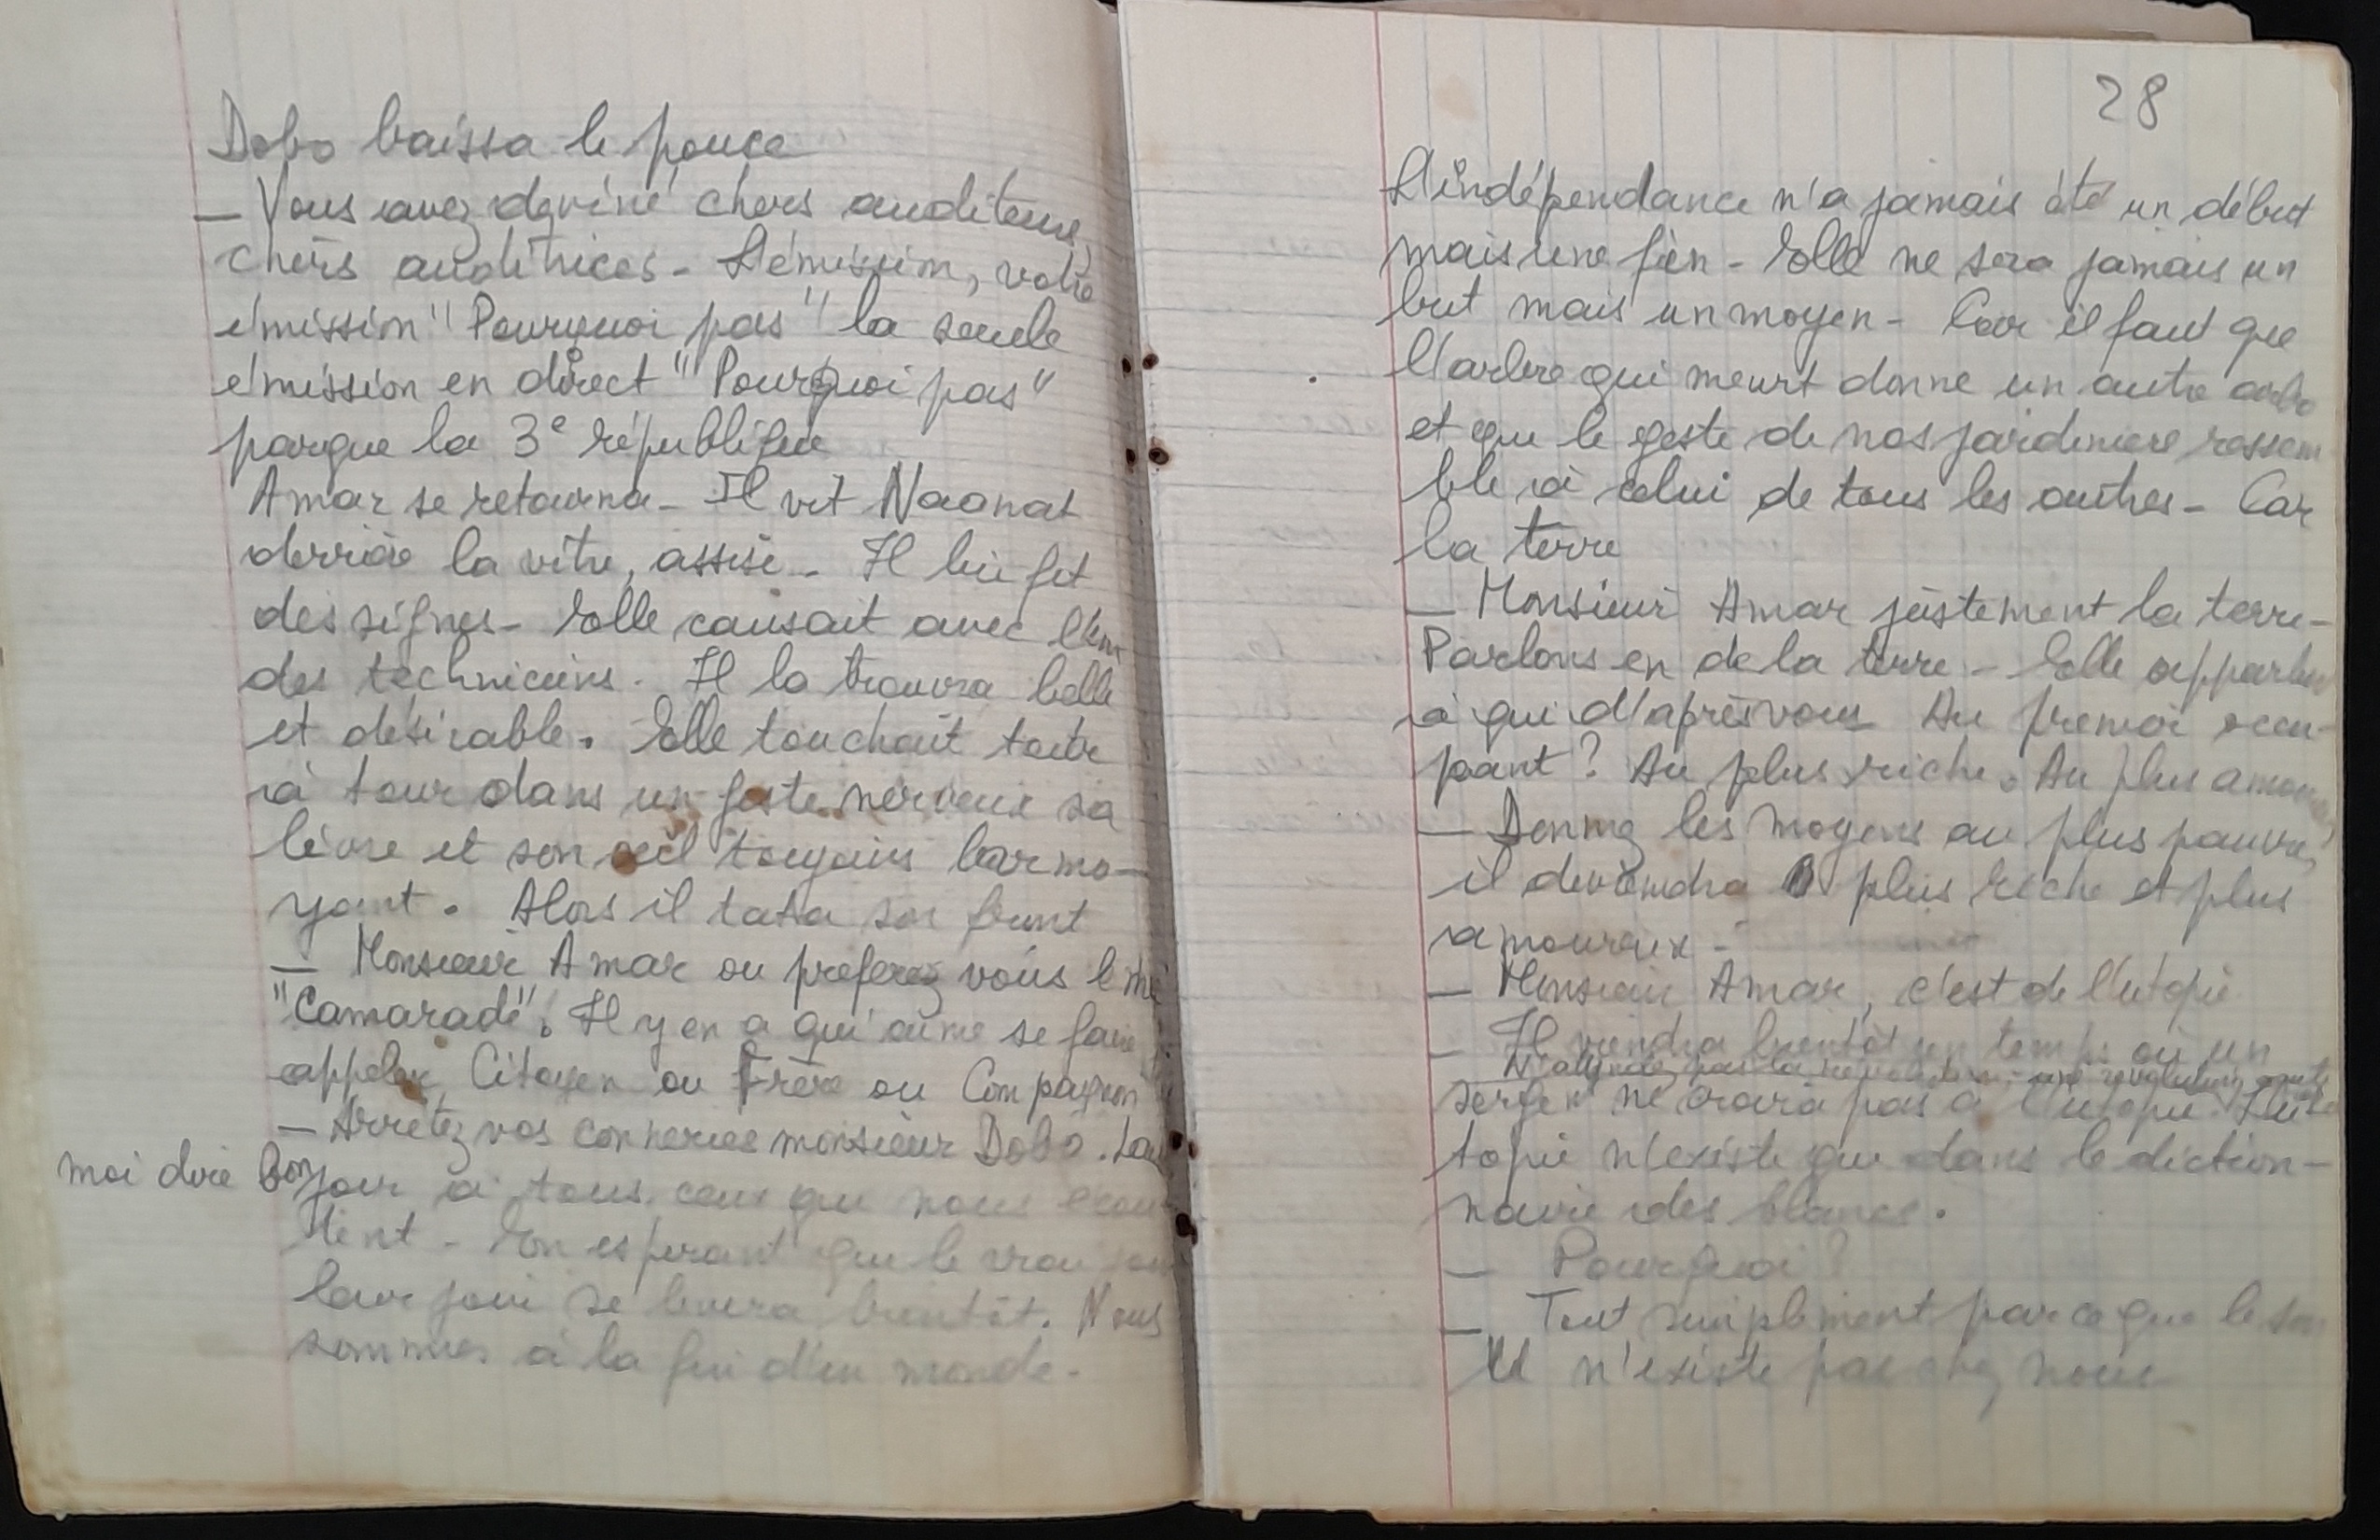 Dobo baissa le pouce
— Vous avez deviné chers auditeurs,
chers auditrices - L'émission, votre
émission "Pourquoi pas" la seule
émission en direct "Pourquoi pas"
parque la 3e république
Amar se retourna - Il vit Naanat
derrière la vitre, assise - Il lui fit
des signes - Elle causait avec l'un
des techniciens. Il la trouva belle
et désirable. Elle touchait tour
à tour dans un geste nerveux sa
lèvre et son œil toujours larmo-
yant. Alors il tata son front
— Monsieur Amar ou préferez vous le
"Camarade". Il y en a qui aime se faire
appeler Citoyen ou Frère ou Compagnon
— Arrêtez vos conneries monsieur Dobo.
moi dire bonjour à tous ceux qui nous écou-
tent - En esperant que le vrai
jour se levera bientôt. Nous
sommes à la fin d'un monde.
28
L'indépendance n'a jamais été un début
mais une fin - Elle ne sera jamais un
but mais un moyen - Car il faut que
l'arbre qui meurt donne un autre arbre
et que le geste de nos jardiniers ressem
ble à celui de tous les autres - Car
la terre
— Monsieur Amar justement la terre -
Parlons en de la terre - Elle appartient
à qui d'après vous Au premier occu-
pant ? Au plus riche. Au plus amoureux
— Donnez les moyens au plus pauvre,
il deviendra plus riche et plus
amoureux -
— Monsieur Amar, c'est de l'utopie
— Il viendra bientôt un temps où un
N' pas la une
ne croira pas à l'utopie. L'u
topie n'existe que dans le diction-
naire des blancs.
— Pourquoi ?
— Tout simplement parce que le
n'existe pas chez nous